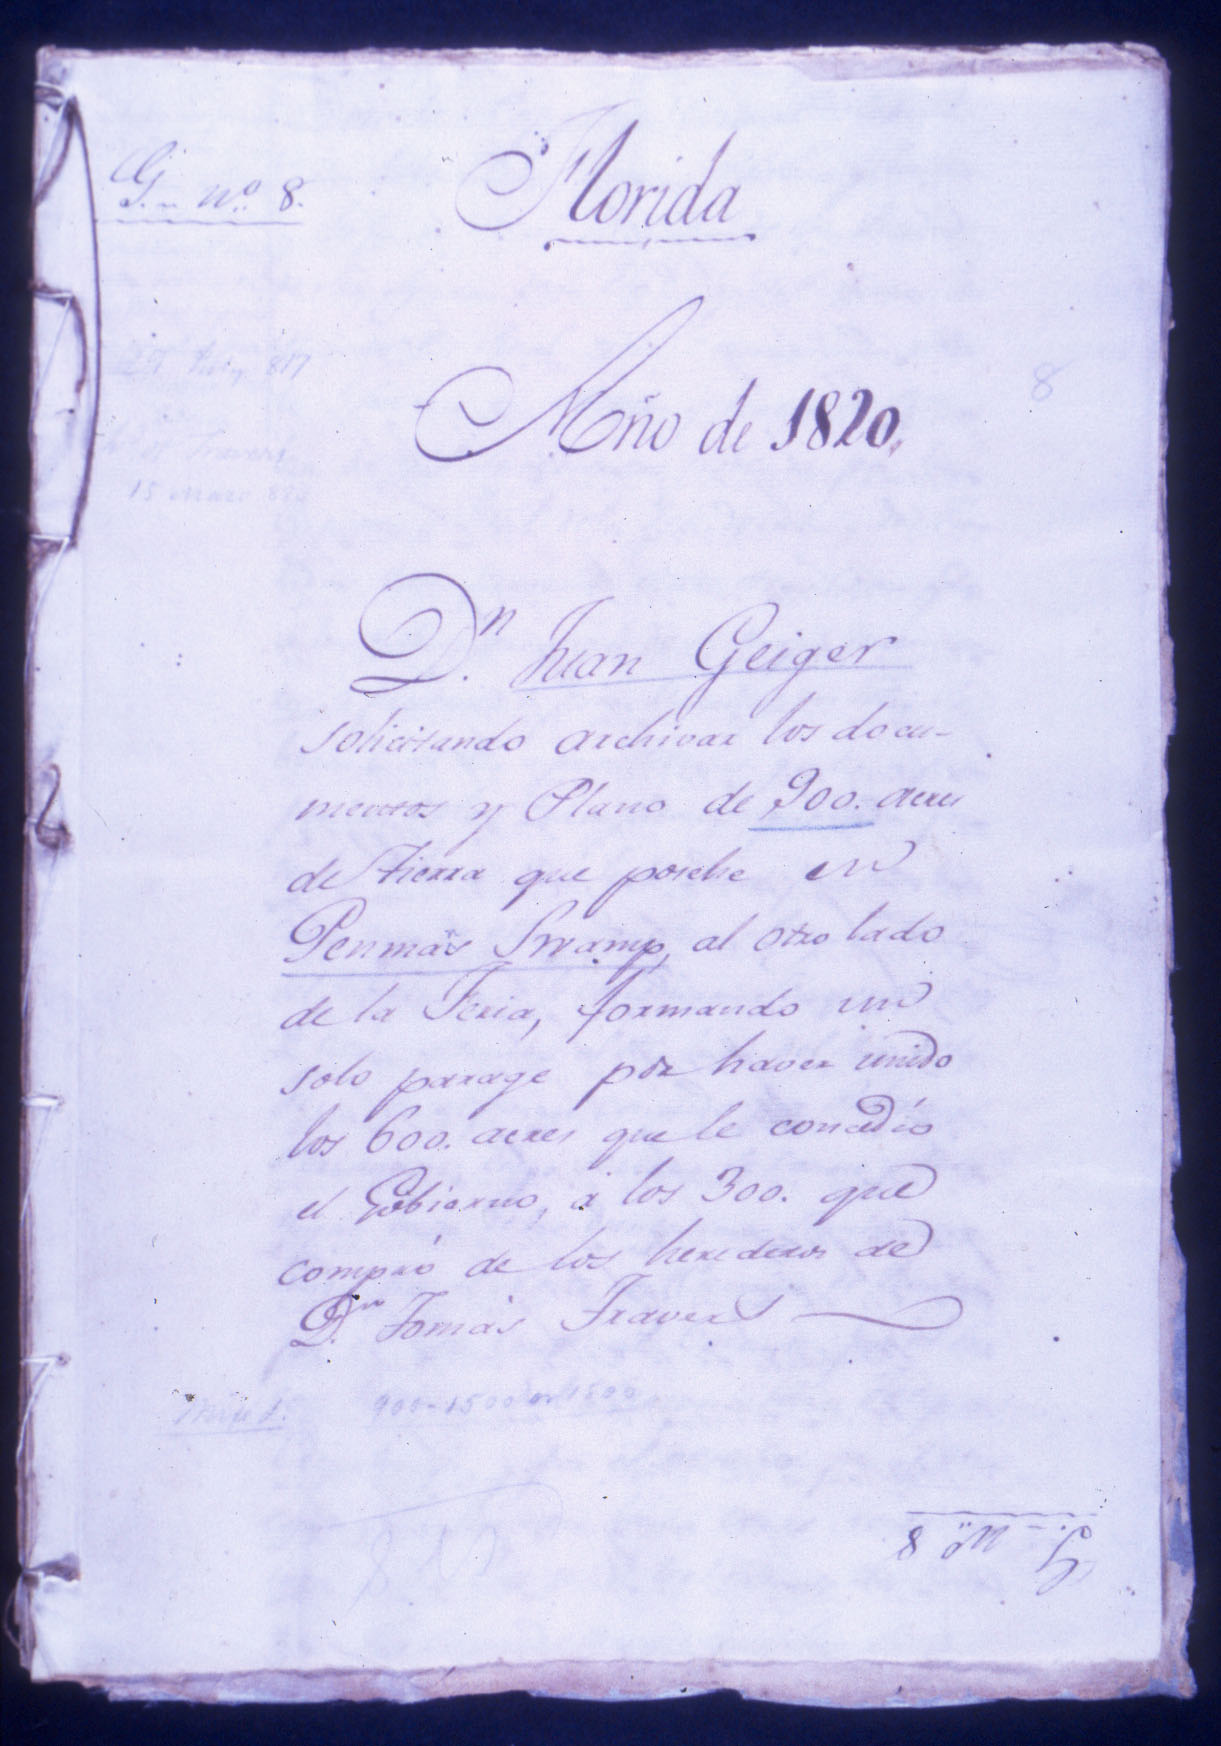 G. Nº 8.
Florida
8
Año de 1820.
15 Marzo
Dn. Juan Geiger
solicitando archivar los docu-
mentos y Plano de 900. acres
de tierra que poséhe en
Penmãs Swamp, al otro lado
de la Feria, formando un
solo parage por haver unido
los 600. acres que le concedió
el Gobierno, á los 300. que
compró de los herederos de
Dn. Tomás Travers
900-1500 or 1800
G. Nº 8